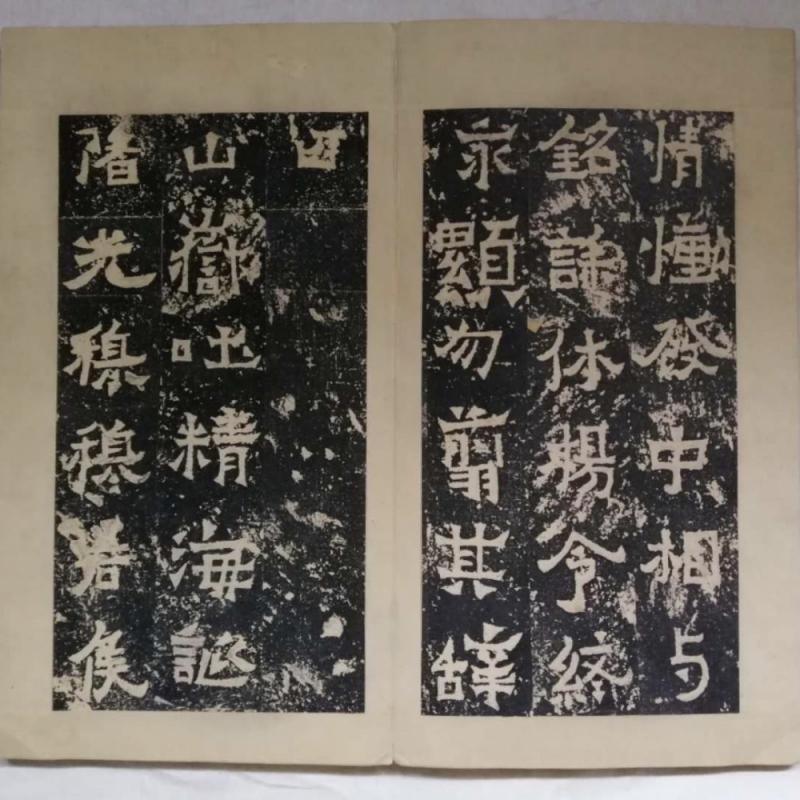 情慟發中相与
銘誄休揚令終
永顯勿翦其辭
曰
山嶽吐精海誕
陼光穆穆君侯